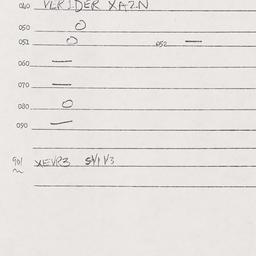 040 VLRIDER XAZN
050 O
051 O 052 —
060 —
070 —
080 O
090 —
901 XEVR3 SV1V3